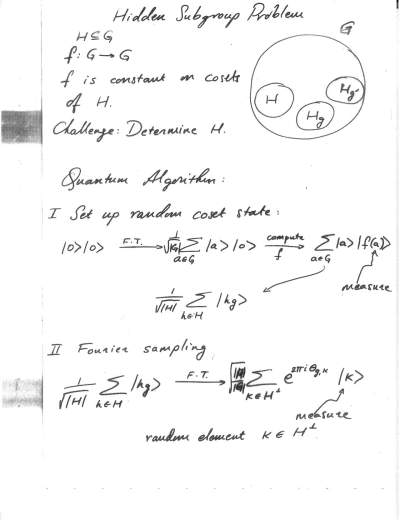 Hidden Subgroup Problem
H ⊆ G
f: G → G
f is constant on cosets
of H.
Challenge: Determine H.
G
H
Hg
Hg'
Quantum Algorithm:
I Set up random coset state:
|0>|0> F.T. → 1/√|G| Σ_{a∈G} |a>|0> compute f → Σ_{a∈G} |a>|f(a)>
measure
1/√|H| Σ_{h∈H} |hg>
II Fourier sampling
1/√|H| Σ_{h∈H} |hg> F.T. → √(|H|/|G|) Σ_{k∈H^⊥} e^{2πiθ_{g,k}} |k>
measure
random element k ∈ H^⊥